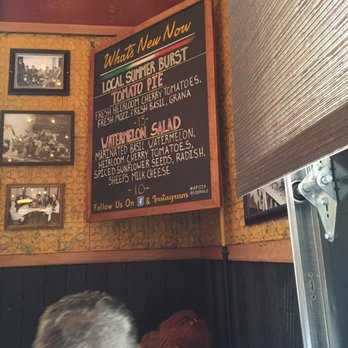 Whats New Now
LOCAL SUMMER BURST
TOMATO PIE
FRESH HEIRLOOM CHERRY TOMATOES,
FRESH MOZZ, FRESH BASIL, GRANA
-15-
WATERMELON SALAD
MARINATED BASIL WATERMELON,
HEIRLOOM CHERRY TOMATOES,
SPICED SUNFLOWER SEEDS, RADISH,
SHEEPS MILK CHEESE
-10-
Follow Us On f & Instagram